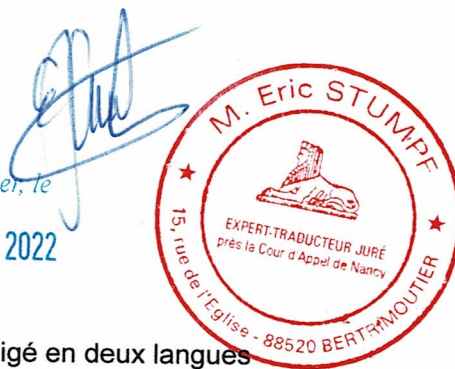 M. Eric STUMPF
EXPERT-TRADUCTEUR JURÉ
près la Cour d'Appel de Nancy
15, rue de l'Eglise - 88520 BERTRIMOUTIER
er, le
2022
igé en deux langues